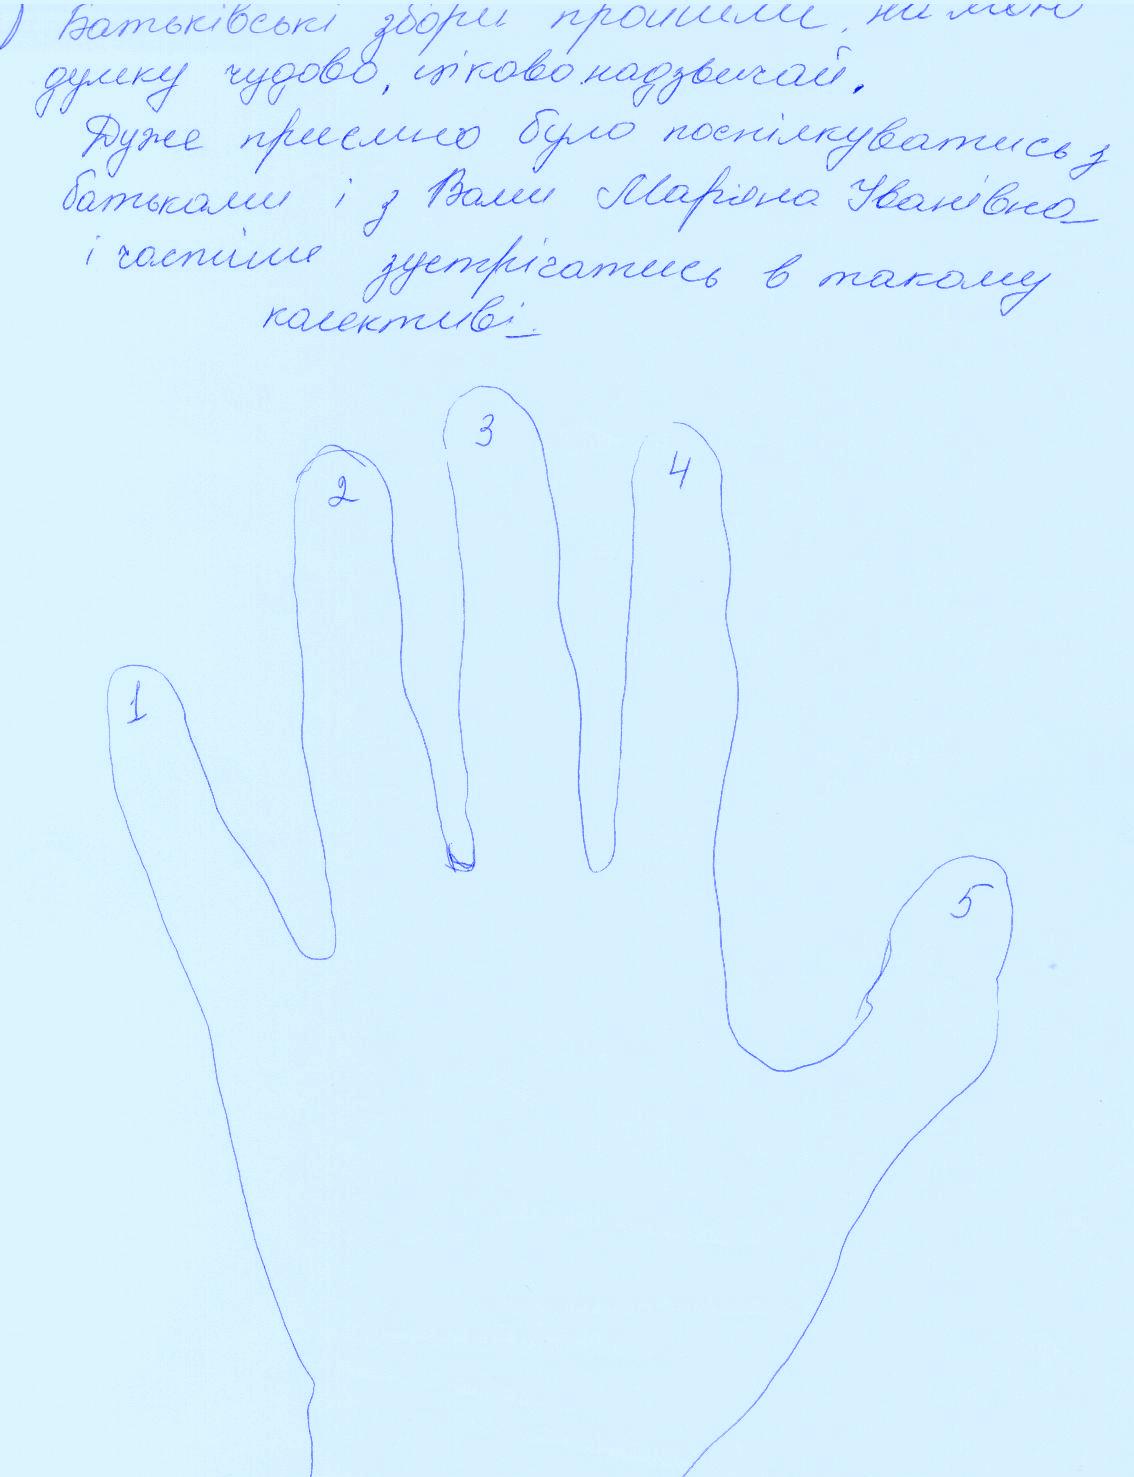 ) Батьківські збори пройшли, на мою
думку чудово, цікаво надзвичай.
Дуже приємно було поспілкуватись з
батьками і з Вами Маріяна Іванівна
і частіше зустрічатись в такому
колективі.
3
4
2
1
5